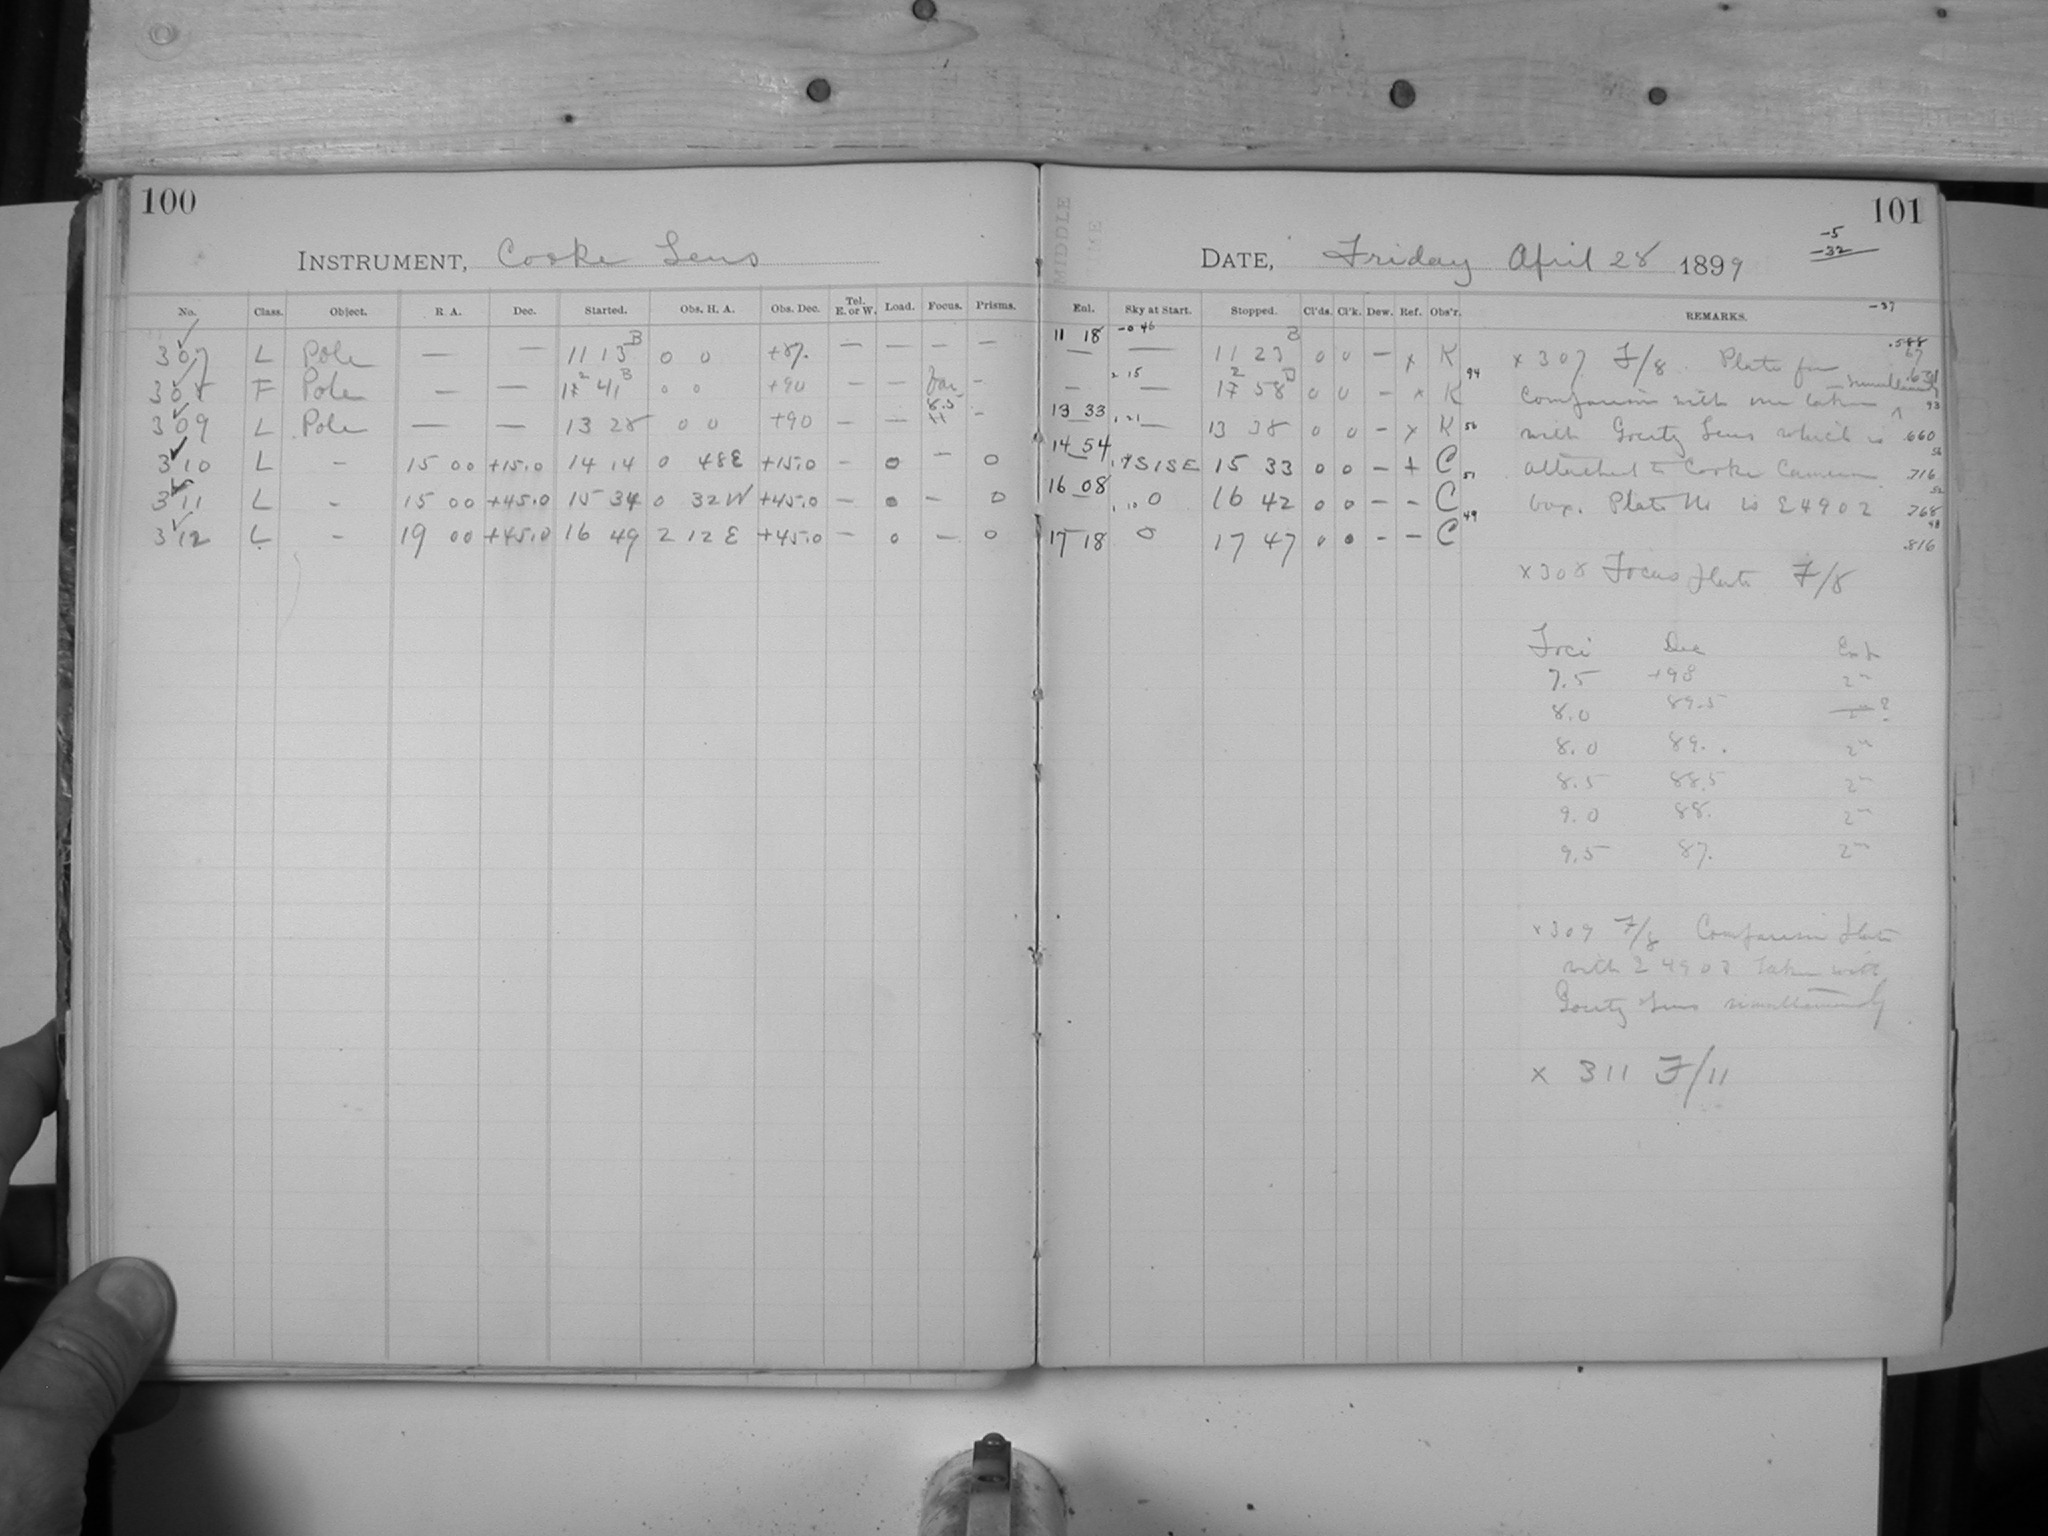 100
INSTRUMENT, Cooke Lens
No. Class. Object. R. A. Dec. Started. Obs. H. A. Obs. Dec. Tel. E. or W. Load. Focus. Prisms.
307 L Pole — — 11 13 B 0 0 +87. — — — —
308 F Pole — — 41 B 0 0 +90 — — —
309 L Pole — — 13 28 0 0 +90 — — 8.5 —
310 L - 15 00 +15.0 14 14 0 48E +15.0 - 0 - 0
311 L - 15 00 +45.0 15 34 0 32W +45.0 - 0 - 0
312 L - 19 00 +45.0 16 49 2 12E +45.0 - 0 - 0
101
MIDDLE
DATE, Friday April 28 1899
-5
-32
-37
Enl. Sky at Start. Stopped. Cl'ds. Cl'k. Dew. Ref. Obs'r. REMARKS.
11 18 -0 46 — 11 23 B 0 0 — x K
— 2 15 — 58 0 0 — x K 94
13 33 1 21 — 13 38 0 0 - x K 56
14 54 1S1SE 15 33 0 0 - + C 51
16 08 0 16 42 0 0 - - C 49
17 18 0 17 47 0 0 - - C
x 307 F/8 Plate for
comparison with one taken simultaneously
with Goertz Lens which is
attached to Cooke Camera
box. Plate No is 24902
.588
67
93
.660
56
.716
52
.768
48
.816
x308 Focus plate F/8
Foci Dec Exp
7.5 +90 2m
8.0 89.5 2m?
8.0 89. 2m
8.5 88.5 2m
9.0 88. 2m
9.5 87. 2m
x309 F/8 Comparison plate
with 24903 taken with
Goertz Lens simultaneously
x 311 F/11